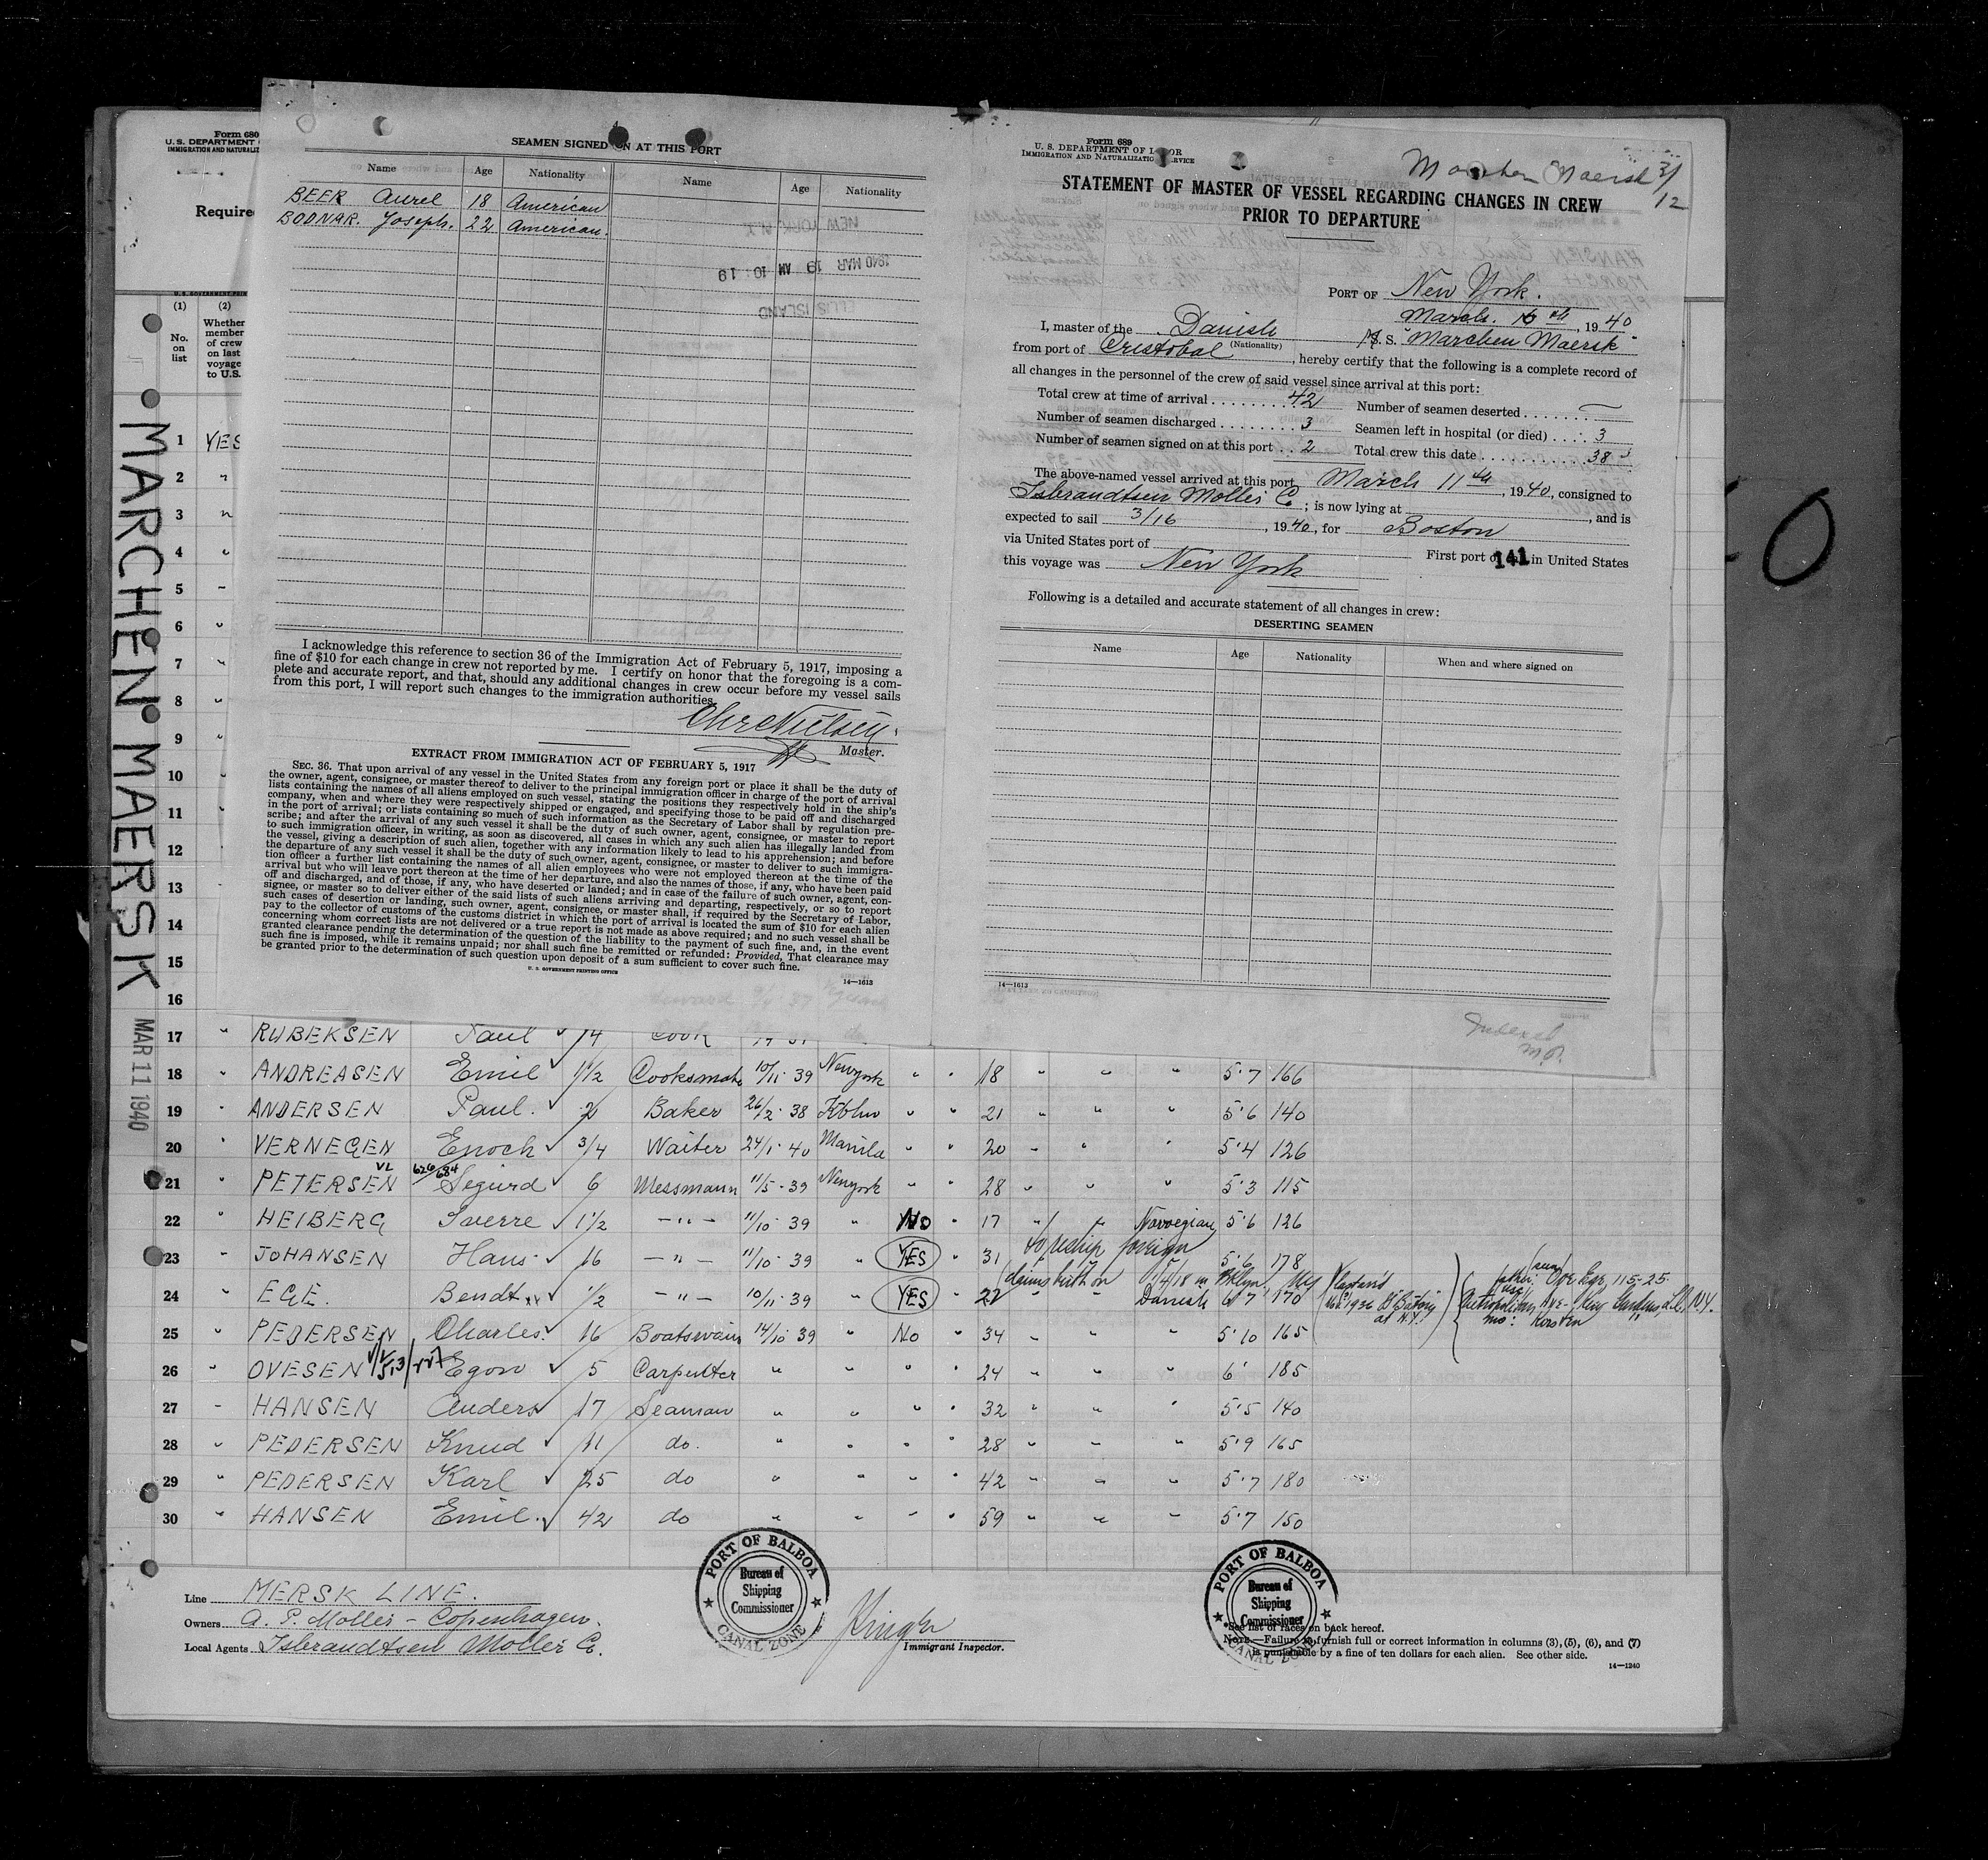 SEAMEN SIGNED ON AT THIS PORT
Name Age Nationality Name Age Nationality
BEER Aurel 18 American
BODNAR. Joseph. 22 American.
NEW YORK
1940 MAR 19 AM 10 19
ELLIS ISLAND
I acknowledge this reference to section 36 of the Immigration Act of February 5, 1917, imposing a
fine of $10 for each change in crew not reported by me. I certify on honor that the foregoing is a com-
plete and accurate report, and that, should any additional changes in crew occur before my vessel sails
from this port, I will report such changes to the immigration authorities.
Chr Nielsen
Master.
EXTRACT FROM IMMIGRATION ACT OF FEBRUARY 5, 1917
SEC. 36. That upon arrival of any vessel in the United States from any foreign port or place it shall be the duty of
the owner, agent, consignee, or master thereof to deliver to the principal immigration officer in charge of the port of arrival
lists containing the names of all aliens employed on such vessel, stating the positions they respectively hold in the ship's
company, when and where they were respectively shipped or engaged, and specifying those to be paid off and discharged
in the port of arrival; or lists containing so much of such information as the Secretary of Labor shall by regulation pre-
scribe; and after the arrival of any such vessel it shall be the duty of such owner, agent, consignee, or master to report
to such immigration officer, in writing, as soon as discovered, all cases in which any such alien has illegally landed from
the vessel, giving a description of such alien, together with any information likely to lead to his apprehension; and before
the departure of any such vessel it shall be the duty of such owner, agent, consignee, or master to deliver to such immigra-
tion officer a further list containing the names of all alien employees who were not employed thereon at the time of the
arrival but who will leave port thereon at the time of her departure, and also the names of those, if any, who have been paid
off and discharged, and of those, if any, who have deserted or landed; and in case of the failure of such owner, agent, con-
signee, or master so to deliver either of the said lists of such aliens arriving and departing, respectively, or so to report
such cases of desertion or landing, such owner, agent, consignee, or master shall, if required by the Secretary of Labor,
pay to the collector of customs of the customs district in which the port of arrival is located the sum of $10 for each alien
concerning whom correct lists are not delivered or a true report is not made as above required; and no such vessel shall be
granted clearance pending the determination of the question of the liability to the payment of such fine, and, in the event
such fine is imposed, while it remains unpaid; nor shall such fine be remitted or refunded: Provided, That clearance may
be granted prior to the determination of such question upon deposit of a sum sufficient to cover such fine.
U. S. GOVERNMENT PRINTING OFFICE
14—1613
Form 689
U. S. DEPARTMENT OF LABOR
IMMIGRATION AND NATURALIZATION SERVICE
Marchen Maersk 3/12
STATEMENT OF MASTER OF VESSEL REGARDING CHANGES IN CREW
PRIOR TO DEPARTURE
PORT OF New York.
March. 16th, 1940
I, master of the Danish M. S. "Marchen Maersk"
(Nationality)
from port of Cristobal, hereby certify that the following is a complete record of
all changes in the personnel of the crew of said vessel since arrival at this port:
Total crew at time of arrival 42 Number of seamen deserted —
Number of seamen discharged 3 Seamen left in hospital (or died) 3
Number of seamen signed on at this port 2 Total crew this date 38
The above-named vessel arrived at this port March 11th, 1940, consigned to
Isbrandtsen Moller Co; is now lying at , and is
expected to sail 3/16, 1940, for Boston
via United States port of
First port of in United States
141
this voyage was New York
Following is a detailed and accurate statement of all changes in crew:
DESERTING SEAMEN
Name Age Nationality When and where signed on
14—1613
Indexed
Form 680
U. S. DEPARTMENT
IMMIGRATION AND NATURALIZ
Require
(1) (2)
No. on list
Whether member of crew on last voyage to U.S.
MARCHEN MAERSK
MAR 11 1940
1 YES
2 "
3 "
4 "
5 -
6 "
7 "
8 "
9 "
10 "
11
12
13
14
15
16
17 " RUBEKSEN Paul 14 Cook
18 " ANDREASEN Emil 1 1/2 Cooksmate 10/11 39 Newyork " " 18 " " " 5'7 166
19 " ANDERSEN Paul. 2 Baker 26/2 38 Kbhn " " 21 " " " 5'6 140
20 " VERNEGEN Enoch 3/4 Waiter 24/1 40 Manila " " 20 " " " 5'4 126
21 " PETERSEN Sigurd 6 Messmann 11/5 39 Newyork " " 28 " " " 5'3 115
22 " HEIBERG Sverre 1 1/2 — " — 11/10 39 " No " 17 " " Norwegian 5'6 126
to reship foreign
23 " JOHANSEN Hans 16 — " — 11/10 39 " YES " 31 5'6 178
claims birth on
24 " EGE. Bendt 1/2 — " — 10/11 39 " YES " 22 " " Danish 6'7 170
25 " PEDERSEN Charles. 16 Boatswain 14/10 39 " No " 34 " " " 5'10 165
26 " OVESEN Egon 5 Carpenter " " " " 24 " " " 6' 185
27 " HANSEN Anders 17 Seaman " " " " 32 " " " 5'5 140
28 " PEDERSEN Knud 11 do. " " " " 28 " " " 5'9 165
29 " PEDERSEN Karl 25 do " " " " 42 " " " 5'7 180
30 " HANSEN Emil. 42 do " " " " 59 " " " 5'7 150
Line MERSK LINE.
Owners A. P. Moller - Copenhagen.
Local Agents Isbrandtsen Moller Co.
PORT OF BALBOA
Bureau of
Shipping
Commissioner
CANAL ZONE
Immigrant Inspector.
PORT OF BALBOA
Bureau of
Shipping
Commissioner
CANAL ZONE
*See list of races on back hereof.
NOTE.—Failure to furnish full or correct information in columns (3), (5), (6), and (7)
is punishable by a fine of ten dollars for each alien. See other side.
14—1240